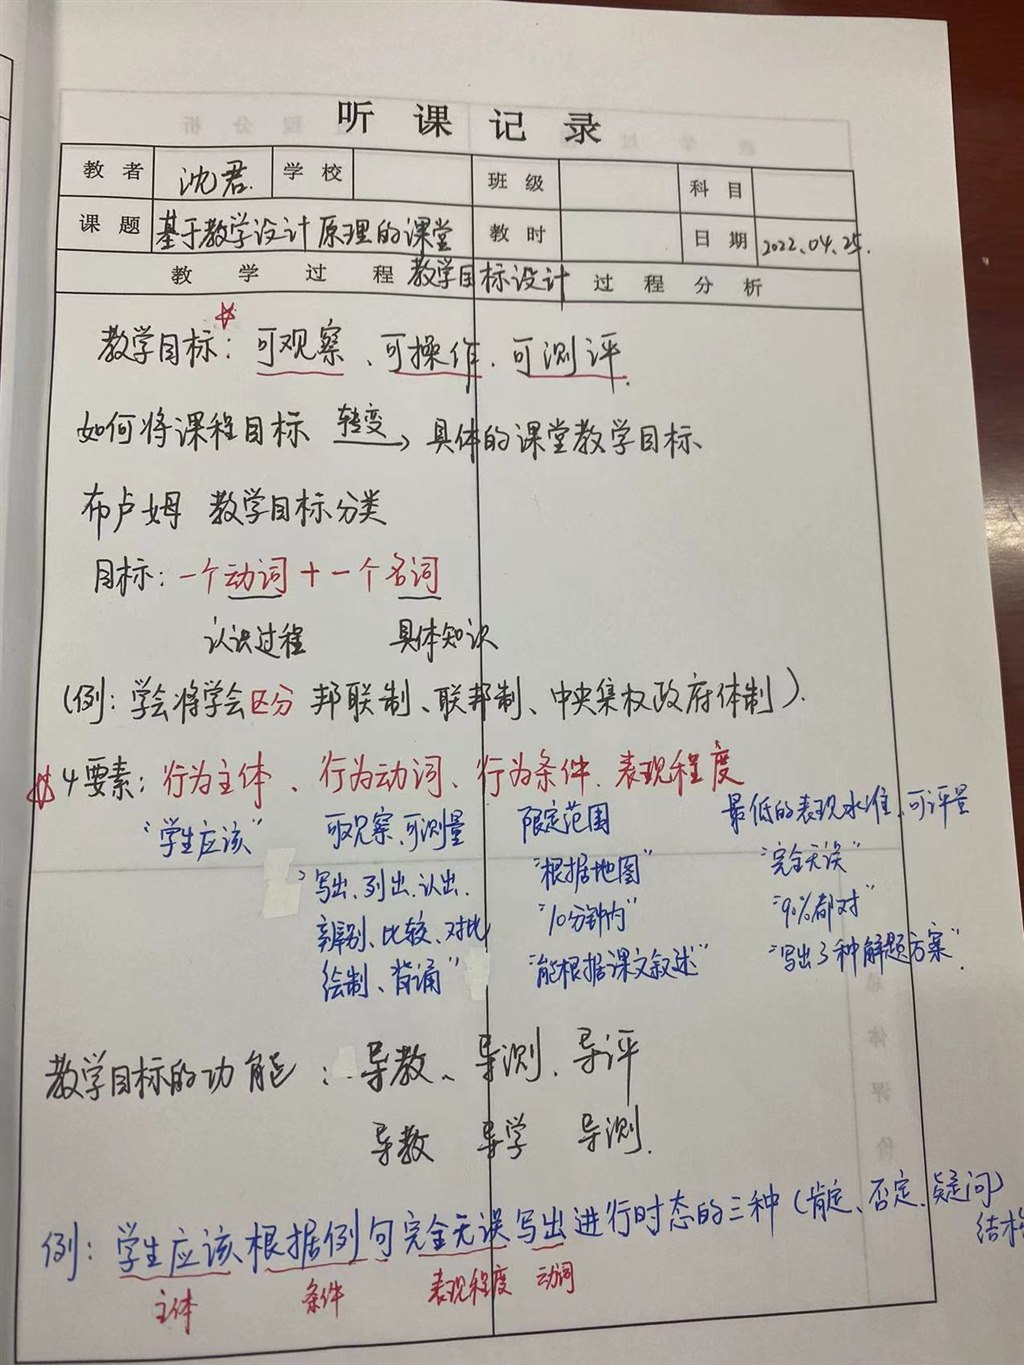 听课记录
教者 沈君 学校 班级 科目
课题 基于教学设计原理的课堂 教时 日期 2022.04.25.
教学过程 教学目标设计 过程分析
教学目标：可观察、可操作、可测评.
如何将课程目标 转变 具体的课堂教学目标、
布卢姆 教学目标分类
目标：一个动词＋一个名词
认识过程 具体知识
(例：学会将学会区分 邦联制、联邦制、中央集权政府体制).
4要素：行为主体、行为动词、行为条件、表现程度
“学生应该” 可观察、可测量 限定范围 最低的表现水准、可评量
写出、列出、认出、 “根据地图” “完全无误”
辨别、比较、对比 “10分钟内” “90%都对”
绘制、背诵” “能根据课文叙述” “写出3种解题方案”.
教学目标的功能：导教、导测、导评
导教 导学 导测.
例：学生应该根据例句完全无误写出进行时态的三种(肯定、否定、疑问)
结构
主体 条件 表现程度 动词
体评价